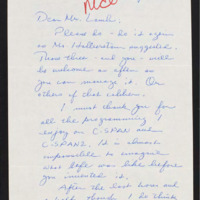 Nice
Dear Mr. Lamb,
Please do - do it again
as Mr Hallowstein suggested.
Those three and you - will
be welcome as often as
you can manage it. Or
others of that caliber.
I must thank you for
all the programming I
enjoy on C-SPAN and
C-SPAN2. It is almost
impossible to imagine
what life was like before
you invented it.
After the last hour and
a half though I do think